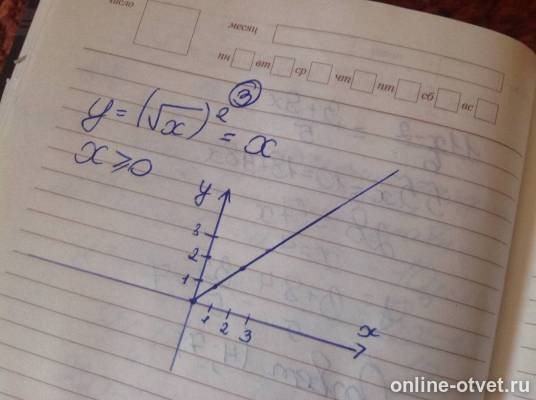 число
месяц
пн вт ср чт пт сб вс
③
y = (√x)² = x
x ⩾ 0
y
3
2
1
1 2 3
x
online-otvet.ru